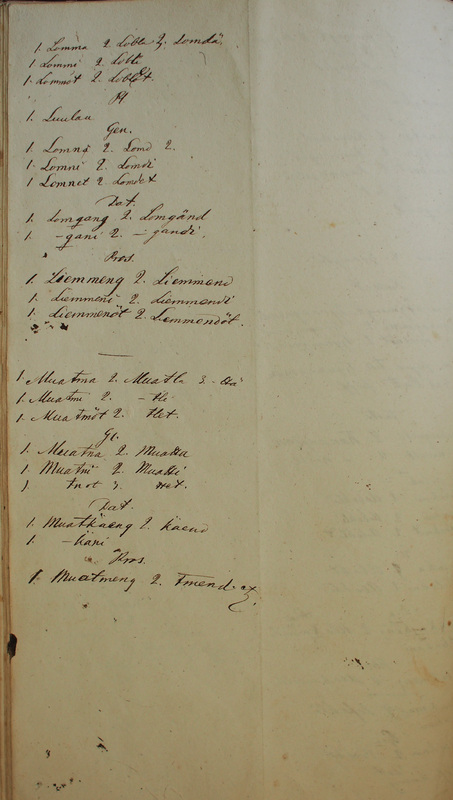 1. Lomma 2 Lobta 3. Lomdä
1 Lommi 2 Lobti
1. Lommöt 2. Lobtet.
Pl
1. Luulau
Gen.
1. Lomna 2. Lomd 2.
1. Lomni 2. Lomdi
1 Lomnet 2 Lomdet
Dat.
1. Lomgang 2. Lomgand
1. -gani 2. - gandi.
Pros.
1. Liemmeng 2. Liemmend
1. Liemmeni 2. Liemmendi
1. Liemmenöt 2. Liemmendöt.
1. Muatma 2. Muatta 3.
1. Muatmi 2. -tti
1. Muatmöt 2. ttet.
Ge.
1. Muatna 2. Muatta
1. Muatni 2. Muatti
1. tnot 2. ttet.
Dat.
1. Muatkaeng 2. kaend
1. -kani
Pros.
1. Muatmeng 2. tmend.